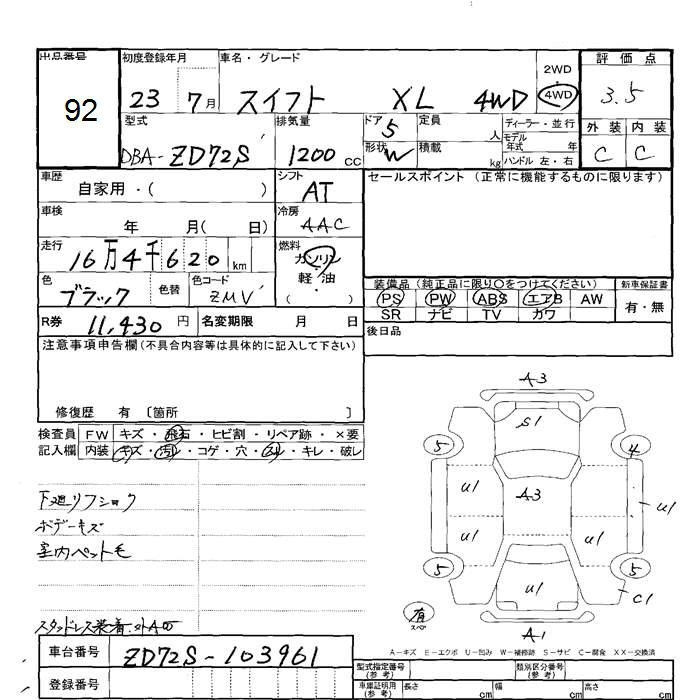 出品番号 初度登録年月 車名・グレード 評価点
92 23 7月 スイフト XL 4WD 2WD 4WD 3.5
型式 排気量 ドア 5 定員 人 ディーラー・並行 外装 内装
DBA-ZD72S 1200 CC 形状 W 積載 kg モデル年式 年 ハンドル 左・右 C C
車歴 自家用・( ) シフト AT セールスポイント (正常に機能するものに限ります)
車検 年 月( 日) 冷房 AAC
走行 16万4千620 km 燃料 ガソリン 軽・油 ( )
色 ブラック 色替 色コード ZMV 装備品 (純正品に限り〇をつけてください) 新車保証書
PS PW ABS エアB AW 有・無
SR ナビ TV カワ
R券 11,430 円 名変期限 月 日 後日品
注意事項申告欄(不具合内容等は具体的に記入して下さい)
修復歴 有 〔箇所 〕
検査員 FW キズ・飛石・ヒビ割・リペア跡・×要
記入欄 内装 キズ・汚レ・コゲ・穴・スレ・キレ・破レ
下廻リフショク
ボデーキズ
室内ペット毛
スタッドレス装着
A3
S1
5 4
U1 A3 U1
U1 U1
5 5
U1 C1
有 スペ
A1
A-キズ E-エクボ U-凹み W-補修跡 S-サビ C-腐食 XX-交換済
車台番号 ZD72S-103961 型式指定番号 (参考) 類別区分番号 (参考)
登録番号 車庫証明用 (参考) 長さ cm 幅 cm 高さ cm